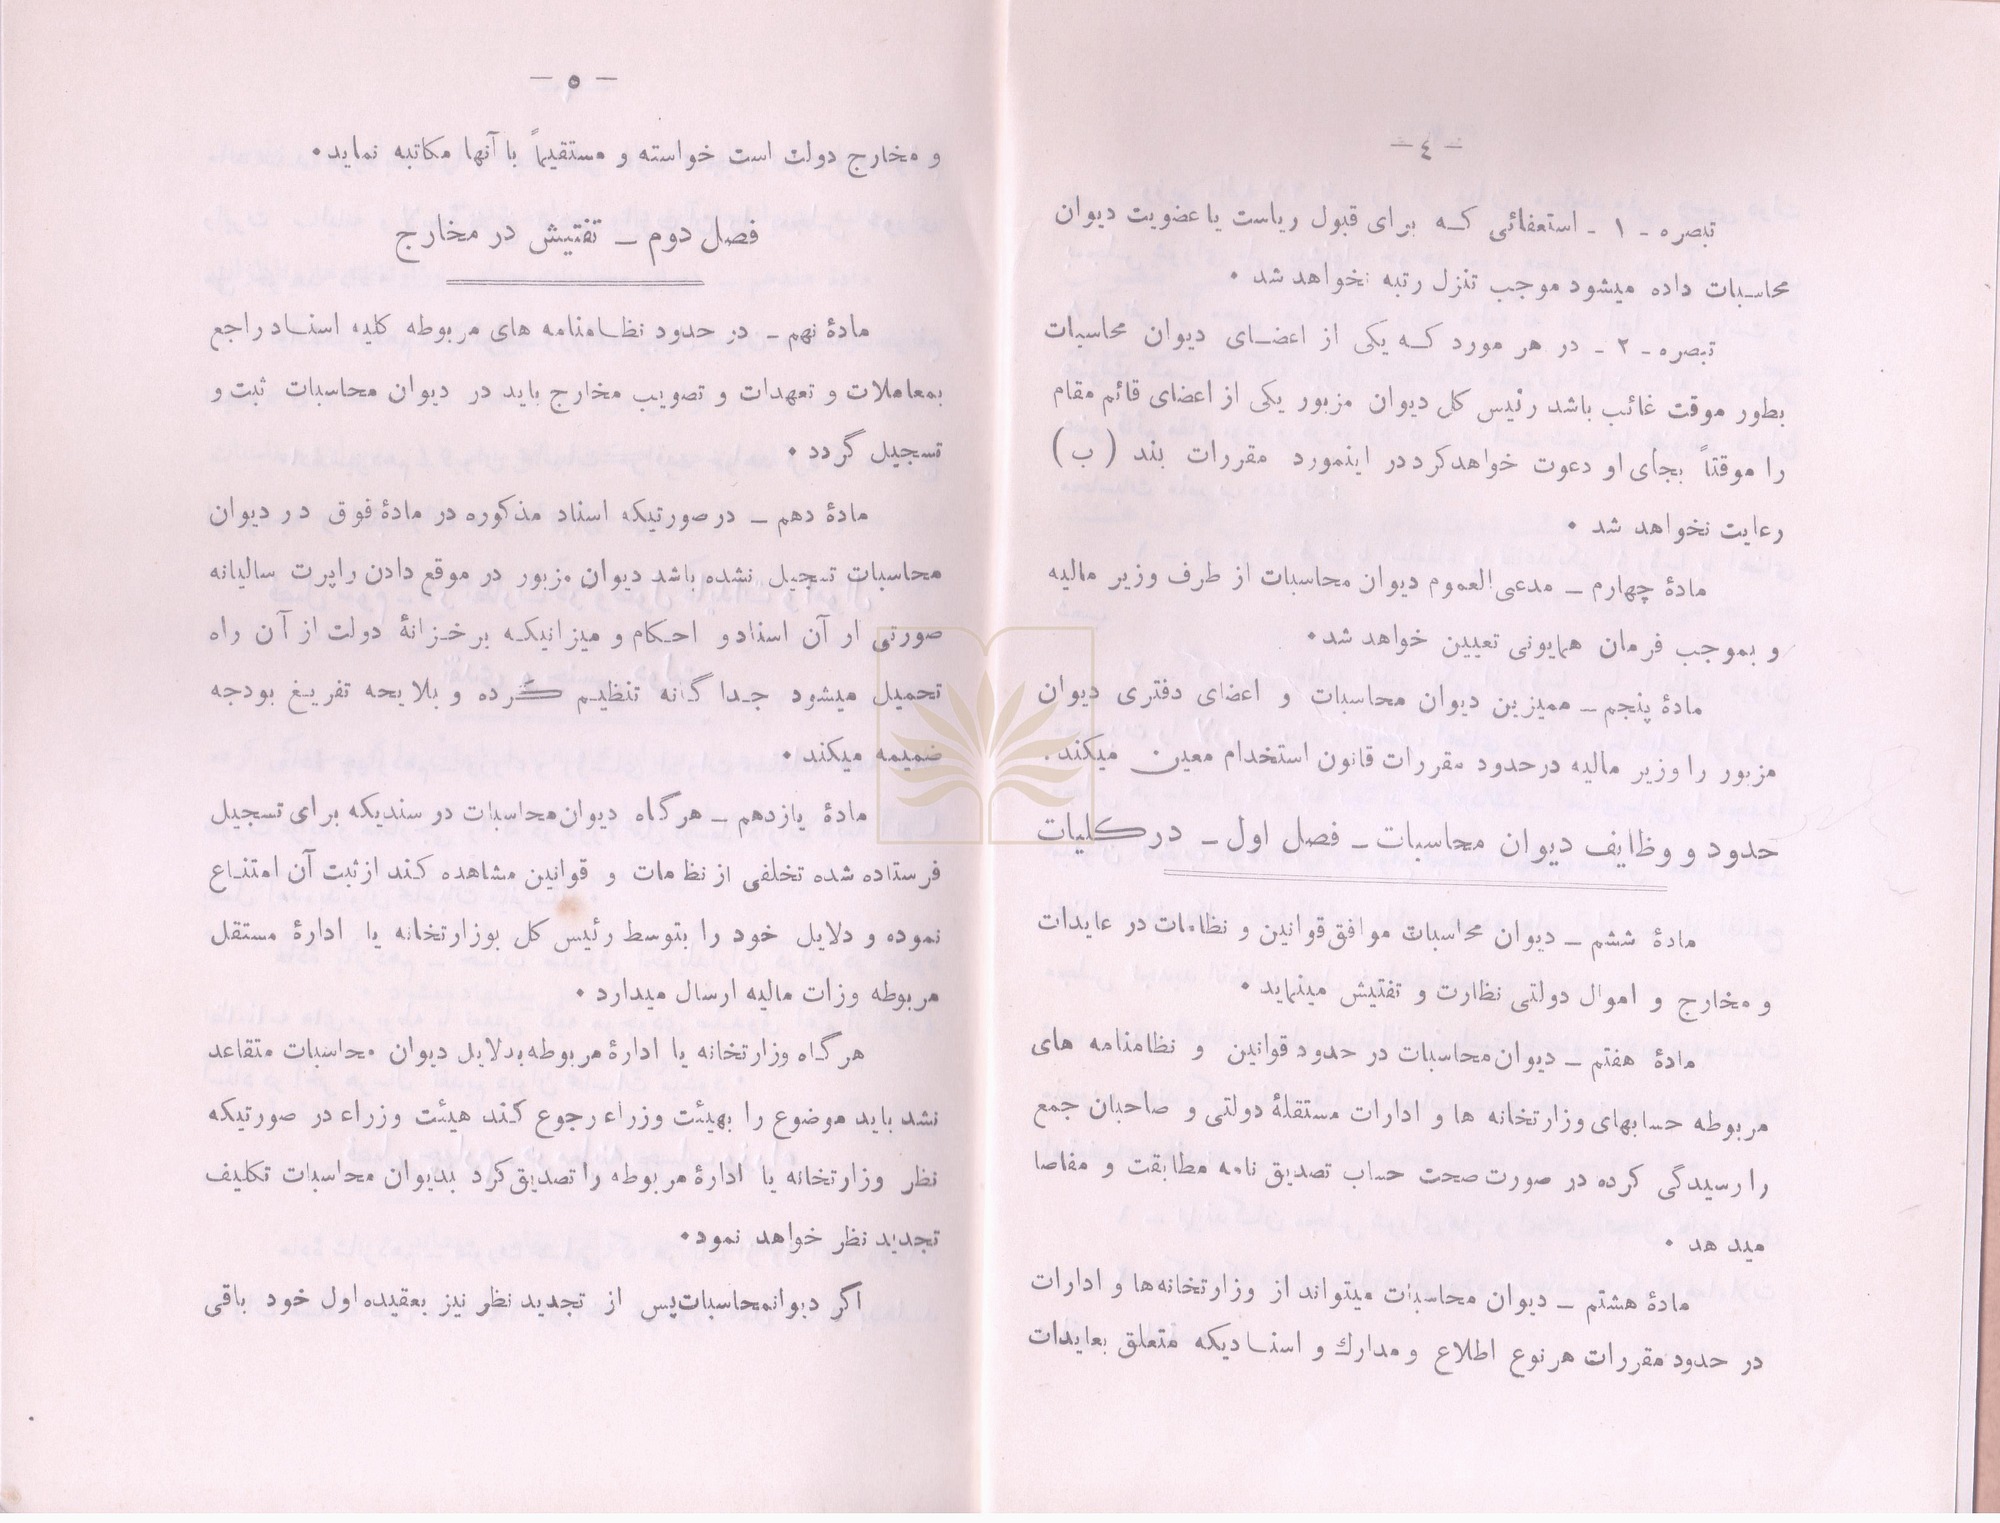 - ٤ -
تبصره - ۱ - استعفائی که برای قبول ریاست یا عضویت دیوان
محاسبات داده میشود موجب تنزل رتبه نخواهد شد .
تبصره - ۲ - در هر مورد که یکی از اعضای دیوان محاسبات
بطور موقت غائب باشد رئیس کل دیوان مزبور یکی از اعضای قائم مقام
را موقتاً بجای او دعوت خواهد کرد در اینمورد مقررات بند ( ب )
رعایت نخواهد شد .
مادۀ چهارم - مدعی العموم دیوان محاسبات از طرف وزیر مالیه
و بموجب فرمان همایونی تعیین خواهد شد.
مادۀ پنجم - ممیزین دیوان محاسبات و اعضای دفتری دیوان
مزبور را وزیر مالیه در حدود مقررات قانون استخدام معین میکند .
حدود و وظایف دیوان محاسبات - فصل اول - در کلیات
مادۀ ششم - دیوان محاسبات موافق قوانین و نظامات در عایدات
و مخارج و اموال دولتی نظارت و تفتیش مینماید .
مادۀ هفتم - دیوان محاسبات در حدود قوانین و نظامنامه های
مربوطه حسابهای وزارتخانه ها و ادارات مستقلۀ دولتی و صاحبان جمع
را رسیدگی کرده در صورت صحت حساب تصدیق نامه مطابقت و مفاصا
میدهد .
مادۀ هشتم - دیوان محاسبات میتواند از وزارتخانه‌ها و ادارات
در حدود مقررات هر نوع اطلاع و مدارك و اسنادیکه متعلق بعایدات
- ۵ -
و مخارج دولت است خواسته و مستقیماً با آنها مکاتبه نماید.
فصل دوم - تفتیش در مخارج
مادۀ نهم - در حدود نظامنامه های مربوطه کلیه اسناد راجع
بمعاملات و تعهدات و تصویب مخارج باید در دیوان محاسبات ثبت و
تسجیل گردد .
مادۀ دهم - در صورتیکه اسناد مذکوره در مادۀ فوق در دیوان
محاسبات تسجیل نشده باشد دیوان مزبور در موقع دادن راپرت سالیانه
صورتی از آن اسناد و احکام و میزانیکه بر خزانۀ دولت از آن راه
تحمیل میشود جدا گانه تنظیم کرده و بلایحه تفریغ بودجه
ضمیمه میکند .
مادۀ یازدهم - هرگاه دیوان محاسبات در سندیکه برای تسجیل
فرستاده شده تخلفی از نظامات و قوانین مشاهده کند از ثبت آن امتناع
نموده و دلایل خود را بتوسط رئیس کل بوزارتخانه یا ادارۀ مستقل
مربوطه وزات مالیه ارسال میدارد .
هرگاه وزارتخانه یا ادارۀ مربوطه بدلایل دیوان محاسبات متقاعد
نشد باید موضوع را بهیئت وزراء رجوع کند هیئت وزراء در صورتیکه
نظر وزارتخانه یا ادارۀ مربوطه را تصدیق کرد بدیوان محاسبات تکلیف
تجدید نظر خواهد نمود.
اگر دیوانمحاسبات پس از تجدید نظر نیز بعقیده اول خود باقی